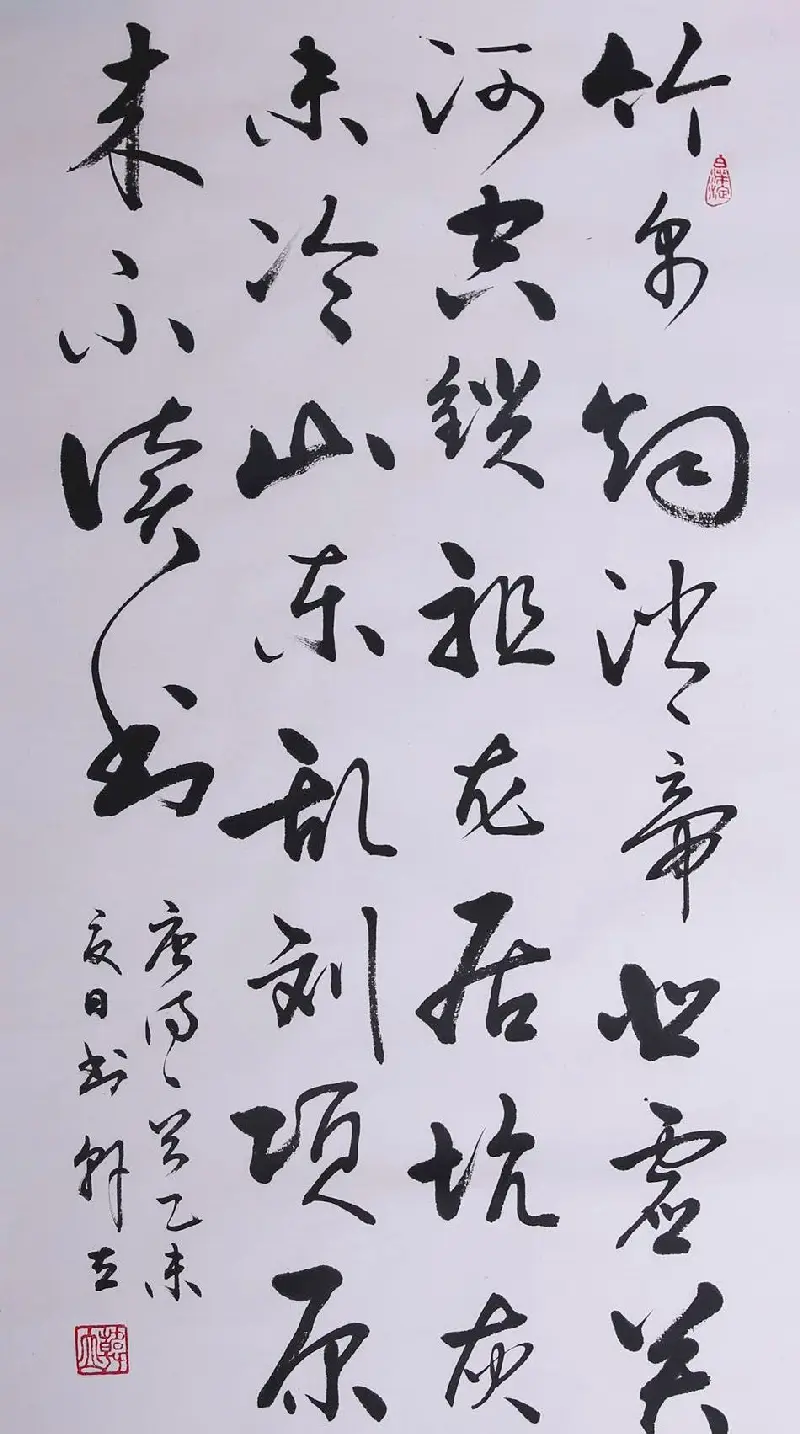 竹帛烟消帝业虚关
河空锁祖龙居坑灰
未冷山东乱刘项原
来不读书
唐诗一首乙未
夏日书韩